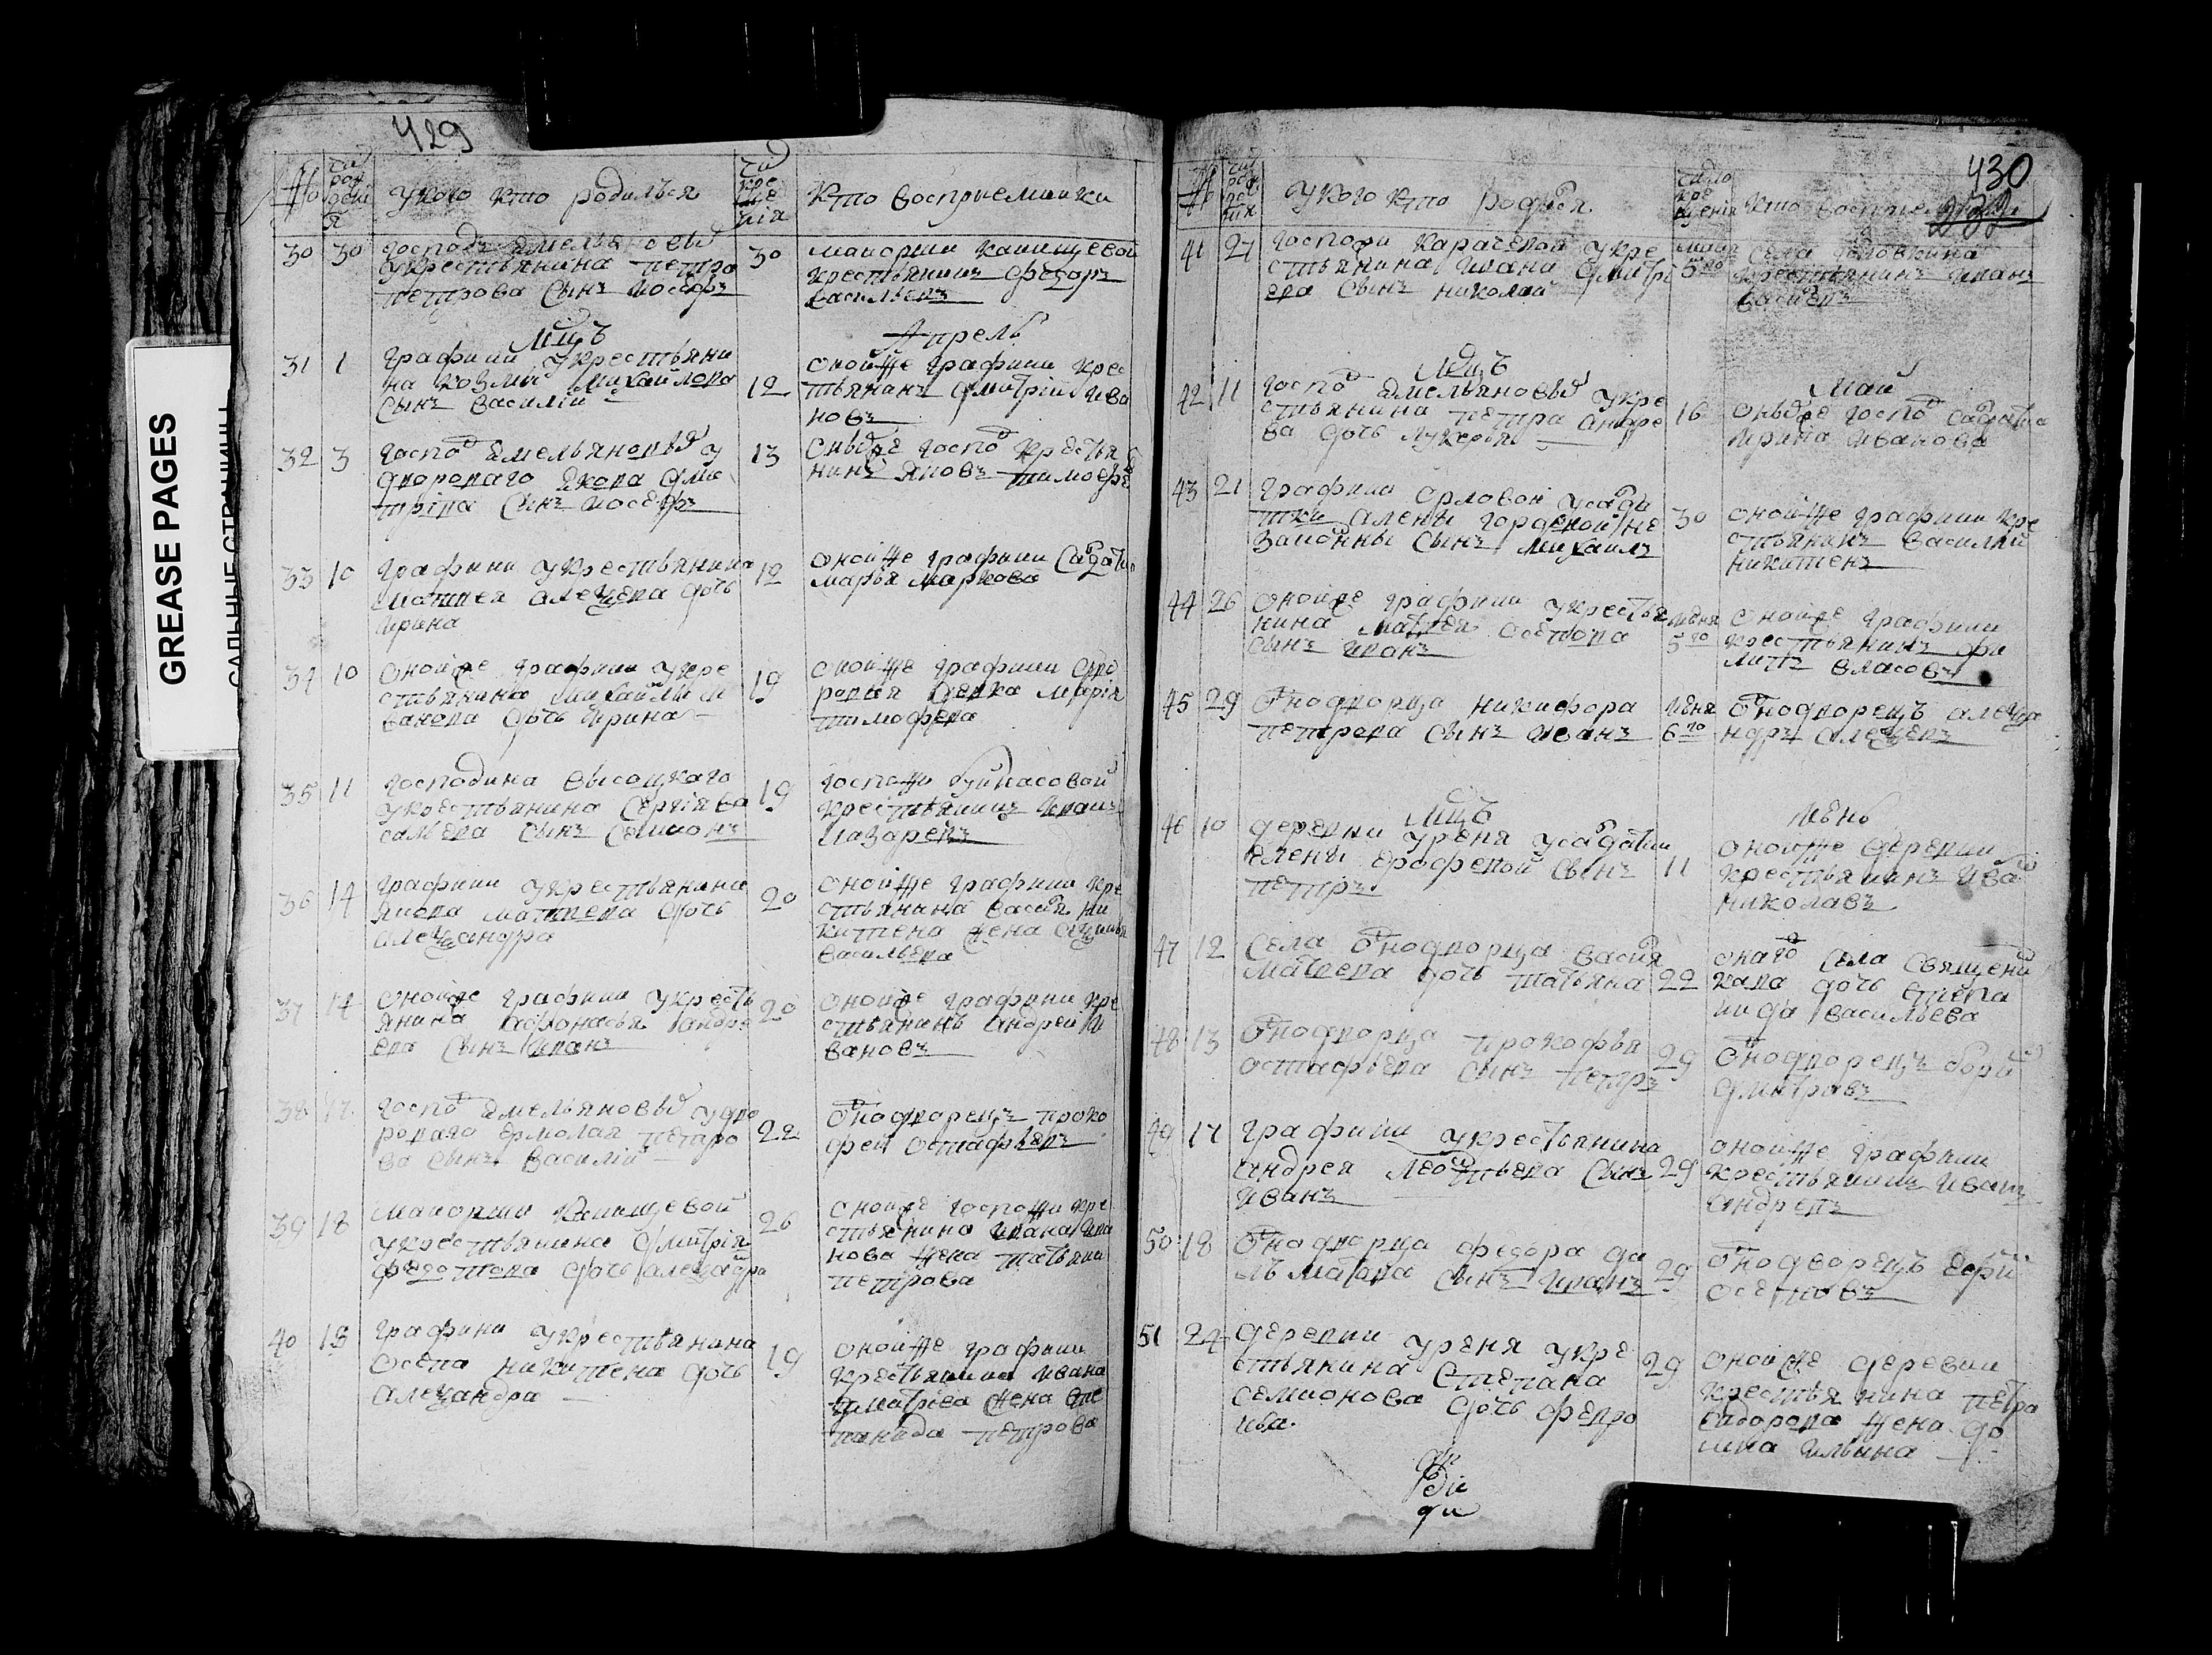 GREASE PAGES
САЛЬНЫЕ СТРАНИЦЫ
429
№ чи рож дени я
у кого кто родился
чи кре ще нія
кто восприемники
30 30 господъ Емельяновы
у крестьянина петра
петрова сынъ иосифъ
30
маиорши Канищевой
крестьянинъ федоръ
васильевъ
Мцъ
Апрель
31 1 графини у крестьяни
на козмы михаилова
сынъ василий
12
оной же графини крес
тьянинъ дмитрій ива
новъ
32 3 госпо Емельяновы у
двороваго якова дми
тріева сынъ иосифъ
13
оны же госпо крестья
нинъ яковъ тимофее
33 10 графини у крестьянина
матвея алеѯева дочь
ирина
12
оной же графини салдатка
марья маркова
34 10 оной же графини у кре
стьянина михаилы и
ванова дочь ирина
19
оной же графини дво
ровая девка марія
тимофеева
35 11 господина высоцкаго
у крестьянина сергія ва
сильева сынъ семионъ
19
госпожи
крестьянинъ иванъ
лазаревъ
36 14 графини у крестьянина
якова матвева дочь
алеѯандра
20
оной же графини кре
стьянина василя ни
китина жена
васильева
37 14 оной же графини у кресть
янина афонасья андре
ева сынъ иванъ
20
оной же графини кре
стьянинъ андреи и
вановъ
38 17 госпо Емельяновы у дво
роваго ермолая петро
ва сынъ василій
22
однодворецъ проко
феи остафьевъ
39 18 маиорши Канищевой
у крестьянина дмитрія
федотова дочь алеѯадра
26
оной же госпожи кре
стьянина ивана ива
нова жена татьяна
петрова
40 18 графини у крестьянина
осипа никитина дочь
алеѯандра
19
оной же графини
крестьянина ивана
дмитріева жена сте
панида петрова
430
232
№ чи рож де ния
у кого кто родися
число кре щения
кто воспрiем
41 27 госпожи карачевой у кре
стьянина ивана дмитрі
ева сынъ николай
маия
5го
села головкина
крестьянинъ иванъ
василевъ
Мцъ
Май
42 11 госпо Емельяновы у кре
стьянина петра андре
ва дочь лукерья
16
оны же госпо садатка
ирина иванова
43 21 графини орловой у салда
тки алены гордевой не
законны сынъ михаилъ
30
оной же графини кре
стьянинъ василий
никитинъ
44 26 оной же графини у крестья
нина матвея осипова
сынъ иванъ
июня
5го
оной же графини
крестьянинъ фи
липъ власовъ
45 29 однодворца никифора
петрова сынъ иванъ
июня
6го
однодворецъ алеѯа
ндръ алеѯевъ
Мцъ
июнь
46 10 деревни уреня у салдатки
елены ерофеевой сынъ
петръ
11
оной же деревни
крестьянинъ ива
николавъ
47 12 села однодворца васия
матвева дочь татьяна
22
онаго села священи
кава дочь степа
нида васильева
48 13 однодворца прокофья
остафьева сынъ петръ
29
однодворецъ
дмитравъ
49 17 графини у крестьянина
андрея леонтьева сынъ
иванъ
29
оной же графини
крестьянинъ иванъ
андревъ
50 18 однодворца федора да
льматова сынъ иванъ
29
однодворецъ
осиповъ
51 24 деревни уреня у кре
стьянина степана
семионова дочь февро
нья.
29
оной же деревни
крестьянина петра
сидорова жена до
мна ильина